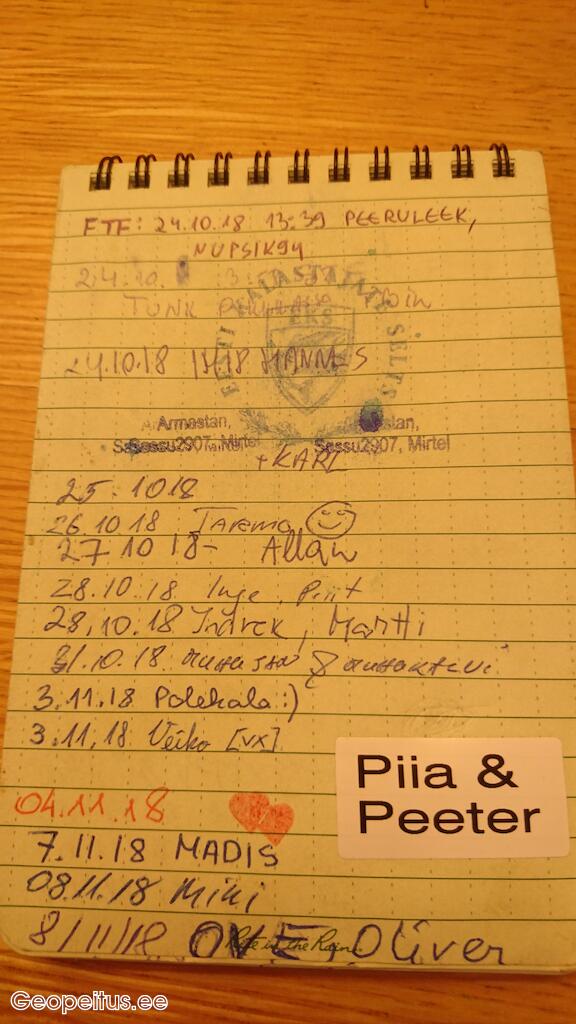 FTF: 24.10.18 13:39 PEERULEEK,
NUPSIK94
24.10.
TUNK
EESTI SELTS
EKS
24.10.18 HANNES
Armastan, 
Sassu2907, Mirtel Sassu2907, Mirtel
+KARL
25.1018
26.10.18 Taremo
27 10 18- Allan
28.10.18 Inge,
28.10.18 Indrek, Martti
31.10.18
3.11.18 Polekala:)
3.11.18 Veiko [VX]
Piia &
Peeter
04.11.18
7.11.18 MADIS
08.11.18 Miki
8/11/18 OVE, Oliver
Rite in the Rain
Geopeitus.ee